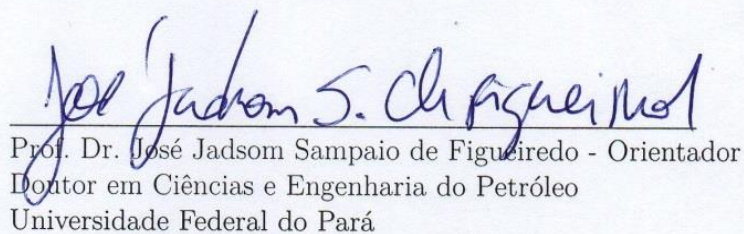 José Jadsom S. de Figueiredo
Prof. Dr. José Jadsom Sampaio de Figueiredo - Orientador
Doutor em Ciências e Engenharia do Petróleo
Universidade Federal do Pará